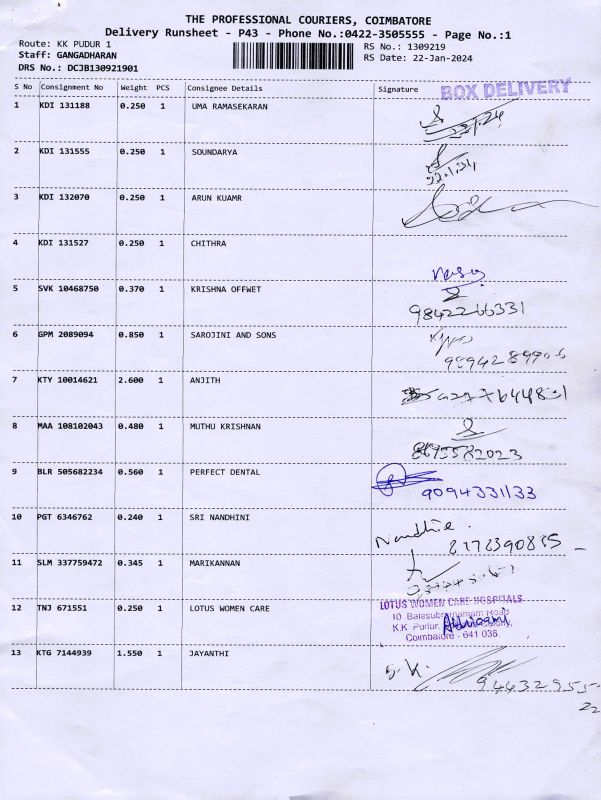 THE PROFESSIONAL COURIERS, COIMBATORE
Delivery Runsheet - P43 - Phone No.:0422-3505555 - Page No.:1
Route: KK PUDUR 1
RS No.: 1309219
Staff: GANGADHARAN
RS Date: 22-Jan-2024
DRS No.: DCJB130921901
S No Consignment No Weight PCS Consignee Details Signature
BOX DELIVERY
1 KDI 131188 0.250 1 UMA RAMASEKARAN
2 KDI 131555 0.250 1 SOUNDARYA
22.1.24
3 KDI 132070 0.250 1 ARUN KUAMR
4 KDI 131527 0.250 1 CHITHRA
5 SVK 10468750 0.370 1 KRISHNA OFFWET
9842266331
6 GPM 2089094 0.850 1 SAROJINI AND SONS
7 KTY 10014621 2.600 1 ANJITH
8 MAA 108102043 0.480 1 MUTHU KRISHNAN
9 BLR 505682234 0.560 1 PERFECT DENTAL
9094331133
10 PGT 6346762 0.240 1 SRI NANDHINI
Nandhie.
11 SLM 337759472 0.345 1 MARIKANNAN
12 TNJ 671551 0.250 1 LOTUS WOMEN CARE
LOTUS WOMEN CARE HOSPITALS
10 Balasubramaniam Road
K.K. Pudur, Colony,
Coimbatore - 641 038.
13 KTG 7144939 1.550 1 JAYANTHI
S.K.
94432955
22